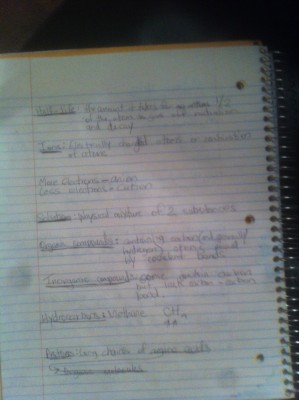 Half-life: the amount it takes for any atoms 1/2
of the atoms to give off radiation
and decay
Ions: Electrically charged atoms or combination
of atoms
More Electrons = anion
Less electrons = cation
Solution: physical mixture of 2 substances
Organic compounds: containing carbon
hydrogen atoms found
by covalent bonds
Inorganic compounds: some contain carbons
but lack carbon - carbon
bond.
Hydrocarbons: Methane CH4
long chains of organic acids